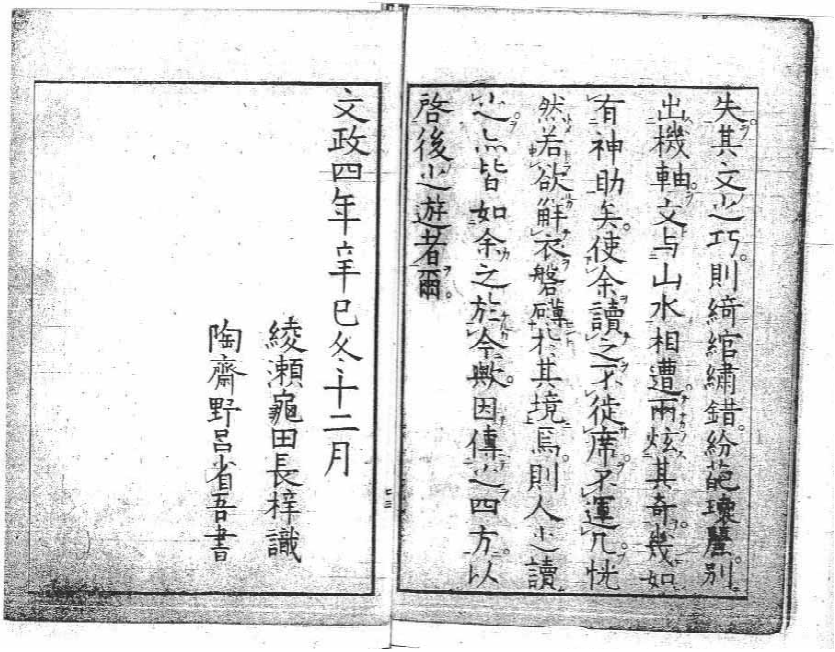 失其文之巧。則綺綰繡錯。紛葩瓌麗。別
出機軸。文与山水相遭。兩炫其奇。幾如
有神助矣。使余讀之。不徙席。不運几。恍
然若欲觧衣磐礴於其境焉。則人之讀
之。亦皆如余之於今歟。因傳之四方。以
啓後之遊者爾。
文政四年辛巳冬十二月
綾瀬龜田長梓識
陶齋野呂省吾書